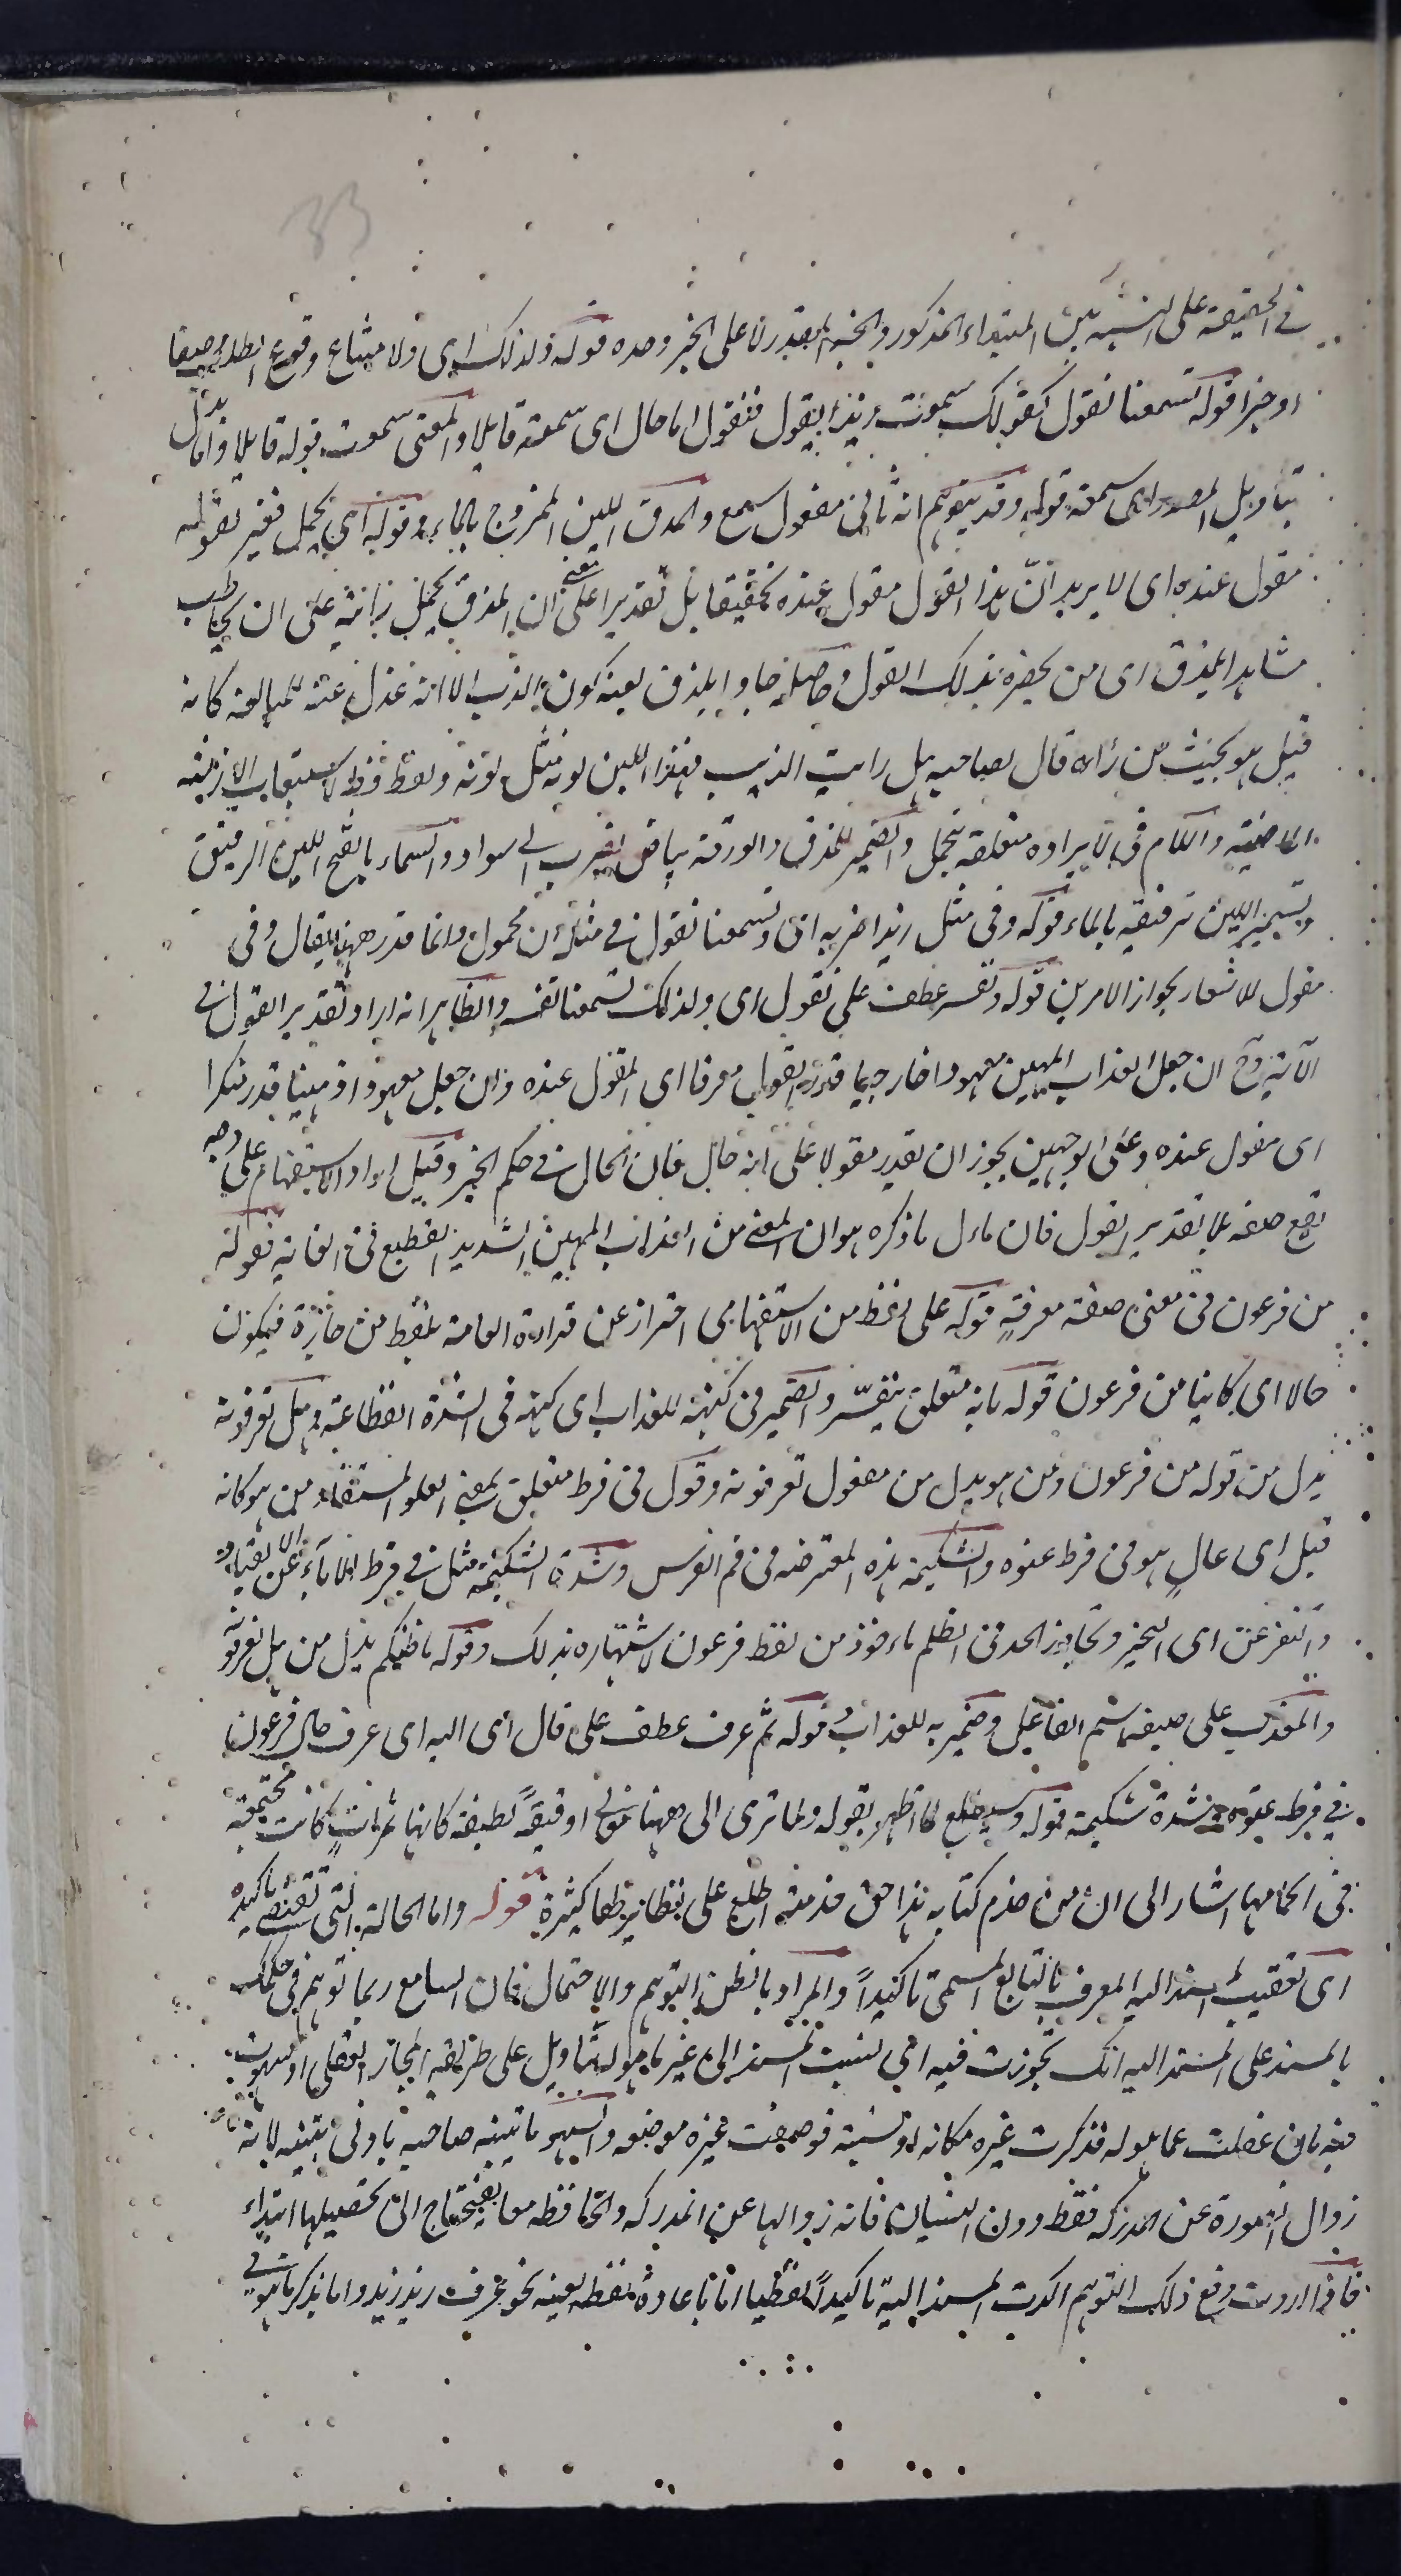 33
في الحقيقة على النسبة بين المبتداء المذكور والخبر المقدر لا على الخبر وحده قوله ولذلك اى ولامتناع وقوع الطلب صفة
او خبرا قوله تسمعنا نقول كقولك سمعت زيدا يقول فنقول اما حال اى سمعته قايلا والمعنى سمعت قوله قايلا واما بدل
بتاويل المصدر اى سمعته قوله وقد يتوهم انه ثانى مفعول سمع والمذق اللبن الممزوج بالماء وقوله اى يحمل فغير بقوله
مقول عنده اى لا يريد انّ هذا القول مقول عنده تحقيقا بل تقديرا على معنى ان المذق يحمل زائيه على ان يخاطب
مشاهد المذق اى من يحضره بذلك القول وحاصله جاوا بمذق لونه كلون الذيب الا انه عدل عنه للمبالغة كانه
قيل هو بحيث من رأه قال لصاحبه هل رايت الذيب فهذا اللبن لونه مثل لونه ولفظ قط لاستيعاب الازمنة
الماضية واللام في لايراده متعلقه بتحمل والضمير للمذق والورقة بياض يضرب الى سواد والسمار بالفتح اللبن الرقيق
وتسمير اللبن ترقيقه بالماء قوله وفى مثل زيدا ضربه اى وتسمعنا نقول في مثله ان محمول وانما قدر ههنا يقال وفى
مقول للاشعار بجواز الامرين قوله وتفسر عطف على نقول اى ولذلك تسمعنا نفسر والظاهر انه اراد تقدير القول في
الآية وح ان جعل العذاب المهين معهودا خارجيا قدر القول معرفا اى المقول عنده وان جعل معهودا ذهنيا قدر منكرا
اى مقول عنده وعلى الوجهين يجوز ان تقدير مقولا على انه حال فان الحال في حكم الخبر وقيل اراد الاستفهام على وجه
يقع صفة بلا تقدير القول فان ماءل ما ذكره هو ان المعنى من العذاب المهين الشديد الفظيع في الغاية فقوله
من فرعون في معنى صفة معرفةٍ قوله على لفظ من الاستفهامى احتراز عن قراءة العامة بلفظ من جارة فيكون
حالا اى كاينا من فرعون قوله بانه متعلق بتفسّر والضمير في كنهه للعذاب اى كنهه في الشدة الفظاعة وهل تعرفونه
بدل من قوله من فرعون ومن هو بدل من مفعول تعرفونه وقوله في فرط متعلق بمعنى العلو المستفاد من هو كانه
قيل اى عالٍ هو في فرط عتوه والشكيمة هذه المعترضه في فم الفرس وشدة الشكيمة مثل في فرط الاباء عن الانقياد
والتفرعن اى التجبر وتجاوز الحد في الظلم ماءخوذ من لفظ فرعون لاشتهاره بذلك وقوله ما ظنكم بدل من هل تعرفونه
والمعذب على صيغة اسم الفاعل وضمير به للعذاب وقوله ثم عرف عطف على قال اى اليه اى عرف حال فرعون
في فرط عتوه وشدة شكيمة قوله وسيطلع لما اظهر بقوله ولما ترى الى ههنا نموذج او دقيقة لطيفة كانها ثمرات كانت مجتمعة
في اكمامها اشار الى ان من خدم كتابه هذا حق خدمته اطلع على نظايرها كثيرة قوله واما الحالة التى تقتضى تاكيده
اى تعقيب المسند اليه المعرف بالتابع المسمى تاكيداً والمراد بالظن التوهم والاحتمال فان السامع ربما توهم في حكمك
بالمسند على المسند اليه انك تجوزت فيه اى لنسبت المسند الى غير ما هو له بتاويل على طريقة المجاز العقلى او سهوت
فيه بان غفلت عما هو له فذكرت غيره مكانه او نسيته فوضعت غيره موضعه والسهو ما يتنبه صاحبه بادنى تنبيه لانه
زوال الصورة عن المدركه فقط دون النسيان فانه زوالها عن المدركه والحافظه معا فيحتاج الى تحصيلها ابتداء
فاذا اردت دفع ذلك التوهم اكدت المسند اليه تاكيداً لفظيا اما باعادة لفظه بعينه نحو عرف زيد زيد واما بذكر ما هو في